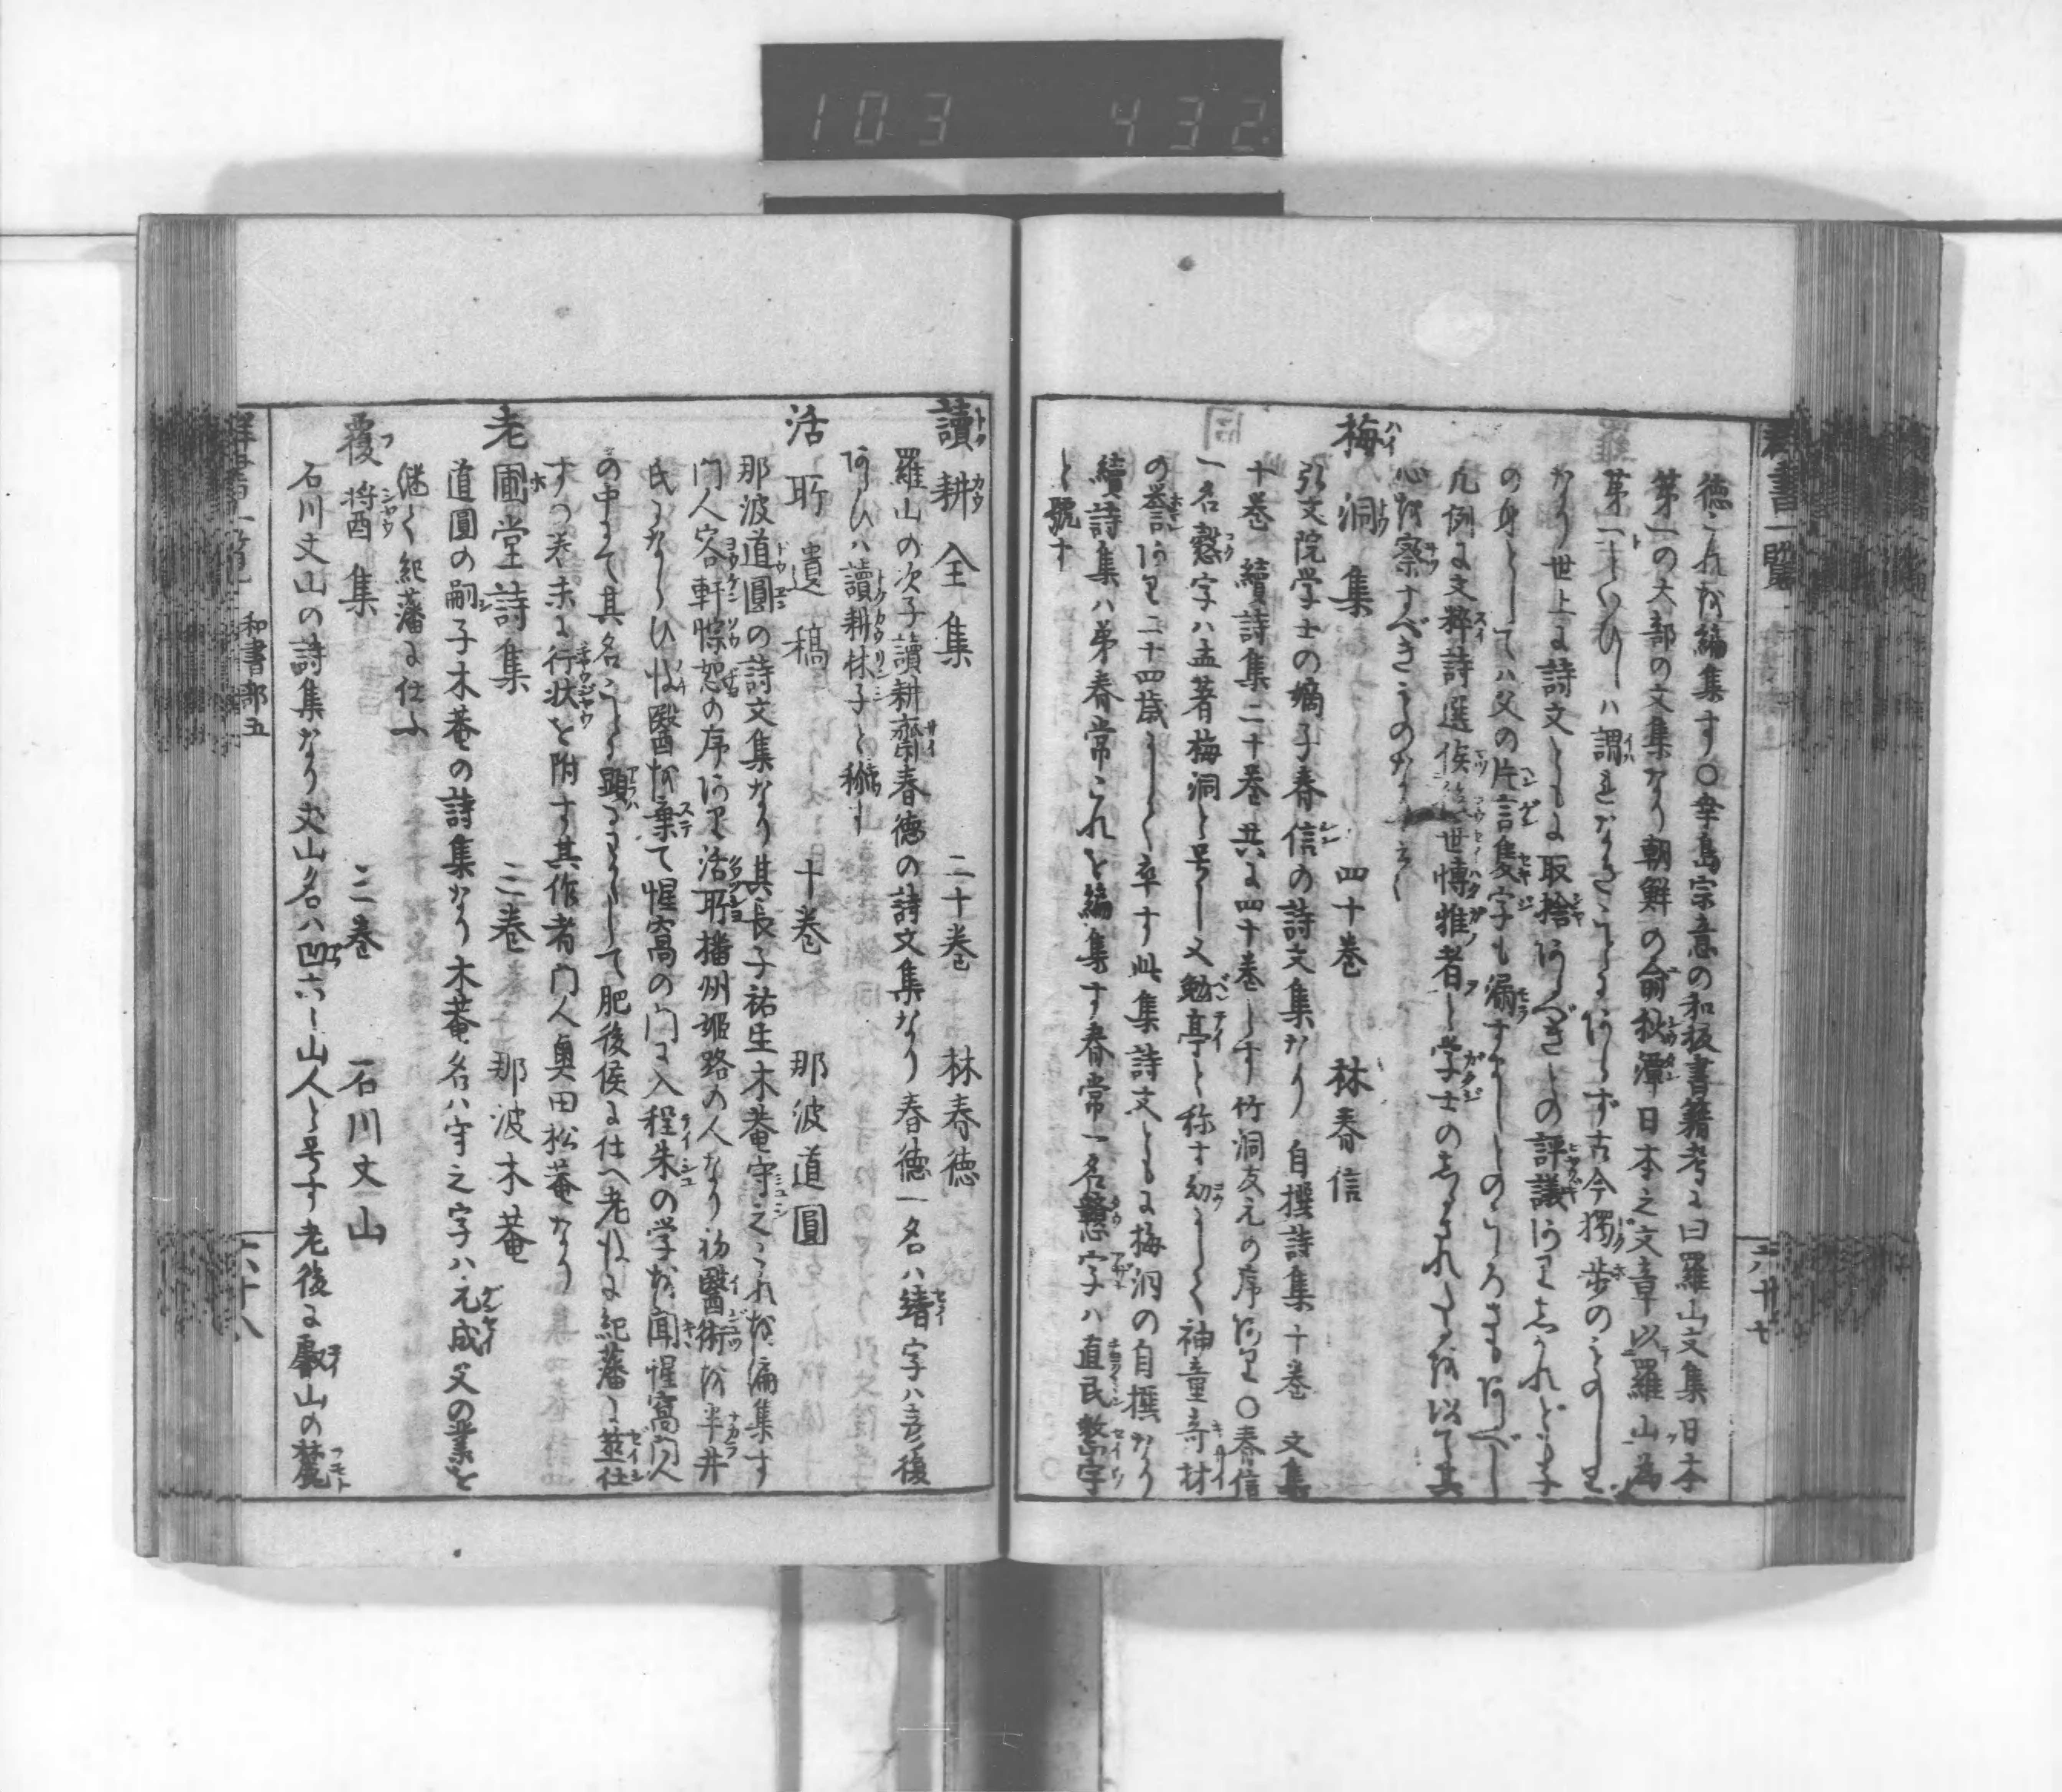 103 432
群書一覧
徳これを編集す〇幸島宗意の和板書籍考に曰羅山文集日本
第一の大部の文集なり朝鮮の兪秋潭日本之文章以羅山為
第一といひしハ謂れなきことにあらず古今獨歩のものしり
なり世上に詩文ともに取捨あるべきとの評議ありしかれども子
の身としてハ父の片言隻字も漏すまじとのこゝろさもあるべし
凡例に文粹詩選俟後世博雅者と学士のしるされたるを以て其
心を察すべきものなりと云〻
梅洞集 四十巻 林春信
弘文院学士の嫡子春信の詩文集なり 自撰詩集十巻 文集
十巻 續詩集二十巻 共に四十巻とす竹洞友元の序あり〇春信
一名愨字ハ孟著梅洞と号し又勉亭と称す幼にして神童奇材
の譽あり二十四歳にして卒す此集詩文ともに梅洞の自撰なり
續詩集ハ弟春常これを編集す春常一名戇字ハ直民整宇
と號す
六十七
讀耕全集 二十巻 林春徳
羅山の次子讀耕齋春徳の詩文集なり 春徳一名ハ靖字ハ彦復
あるひハ讀耕林子と稱す
活所遺稿 十巻 那波道圓
那波道圓の詩文集なり其長子祐生木菴守之これを編集す
門人容軒惊恕の序あり活所播州姫路の人なり初醫術を半井
氏にならひ後醫を棄て惺窩の門に入程朱の学を聞惺窩門人
の中にて其名ことに顕るわかくして肥後侯に仕へ老後に紀藩に筮仕
すつ巻末に行状を附す其作者門人奥田松菴なり
老圃堂詩集 三巻 那波木菴
道圓の嗣子木菴の詩集なり木菴名ハ守之字ハ元成父の業を
継て紀藩に仕ふ
覆醤集 二巻 石川丈山
石川丈山の詩集なり丈山名ハ凹六六山人と号す老後に叡山の麓
群書一覧 和書部五
六十八